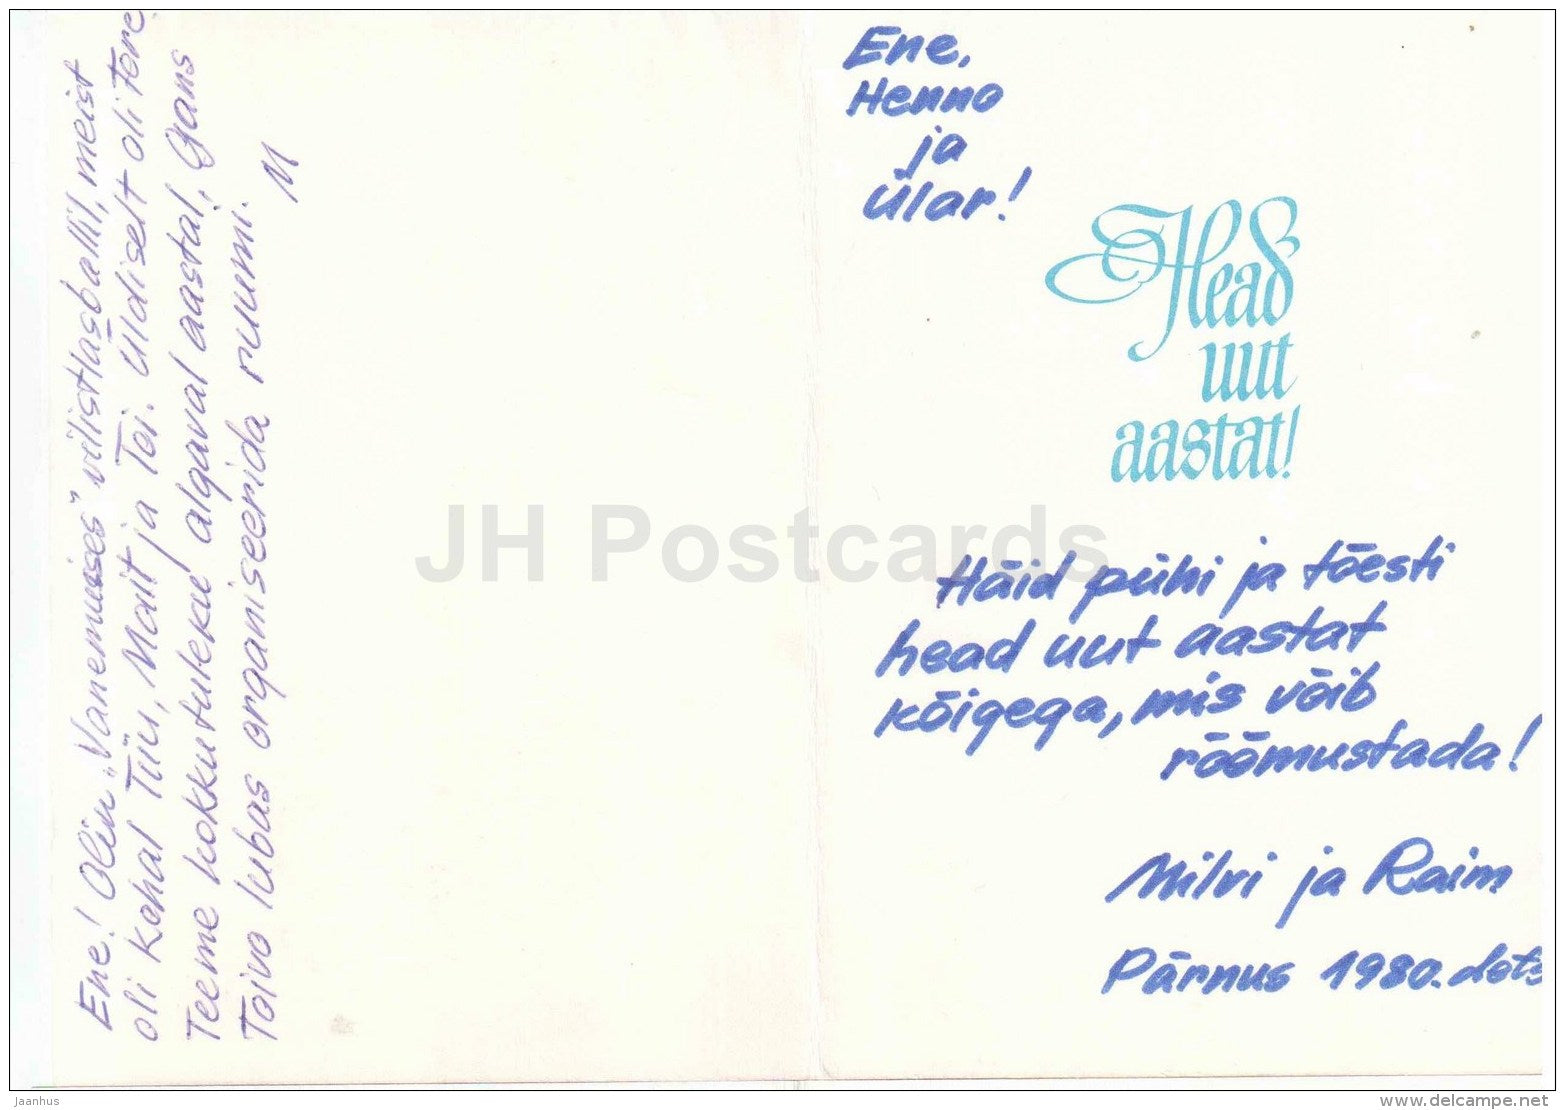 Ene! Olin „Vanemuises" vilistlasballil, meist
oli kohal Tiiu, Mait ja Toi. Üldiselt oli tore.
Teeme kokkutuleku algaval aastal, Gans
Toivo lubas organiseerida ruumi.
M
Ene,
Henno
ja
Ülar!
Head
uut
aastat!
Häid pühi ja tõesti
head uut aastat
kõigega, mis võib
rõõmustada!
Milvi ja Raim
Pärnus 1980. dets
JH Postcards
Jaanhus
delcampe.net